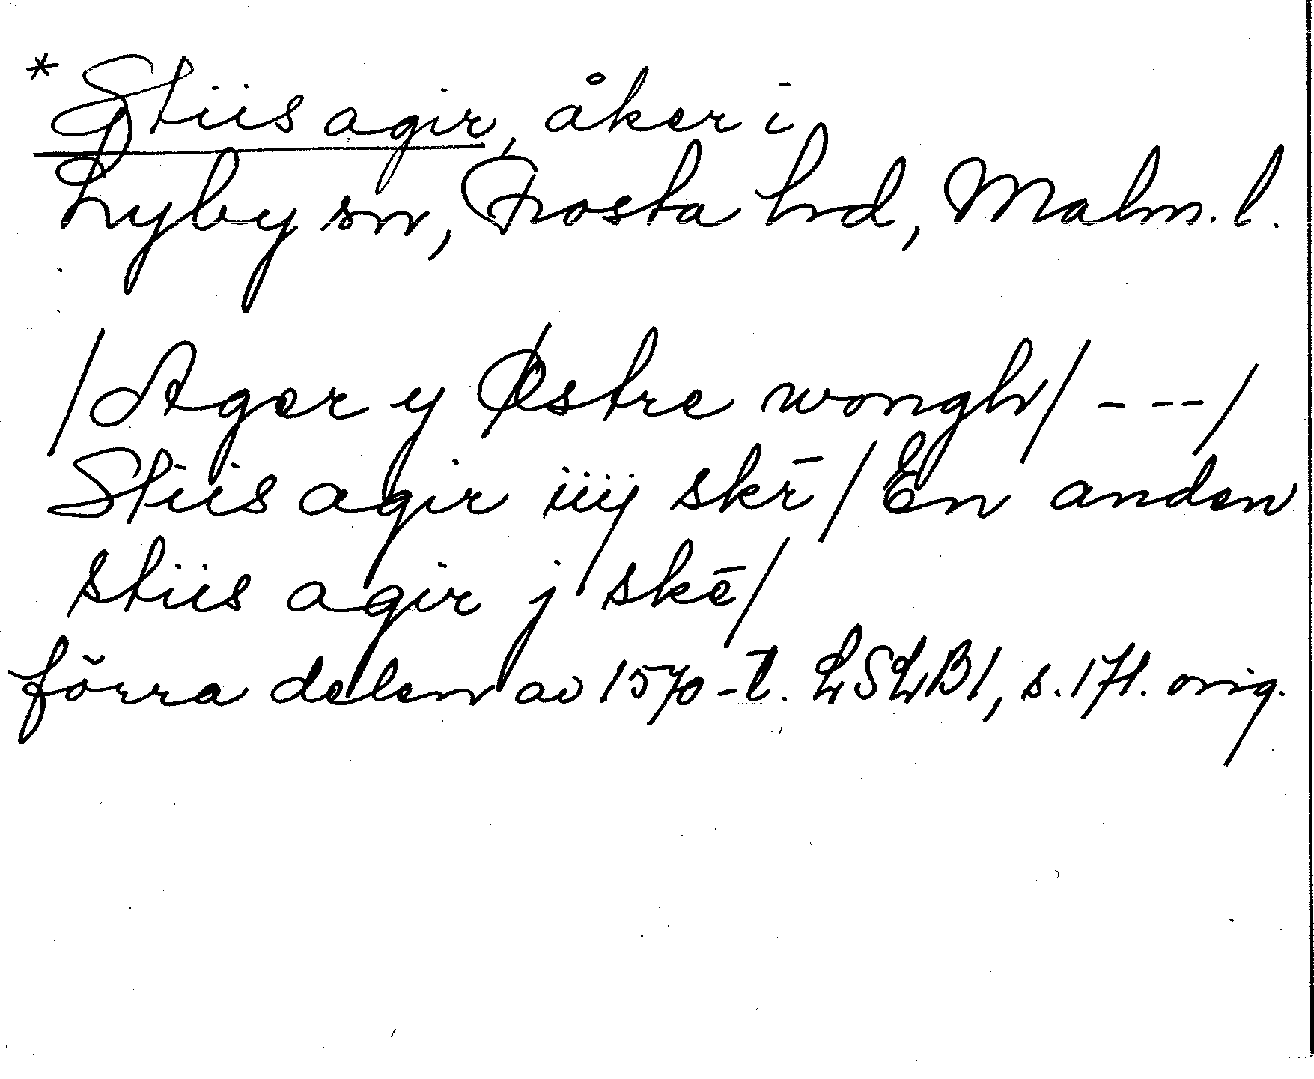 * Stiis agir, åker i
Lyby sn, Frosta hd, Malm. l.
/Ager y Østre wongh/ - - - /
Stiis agir iiij skē / En anden
stiis agir j skē/
förra delen av 1570-t. LSLB1, s. 171. orig.